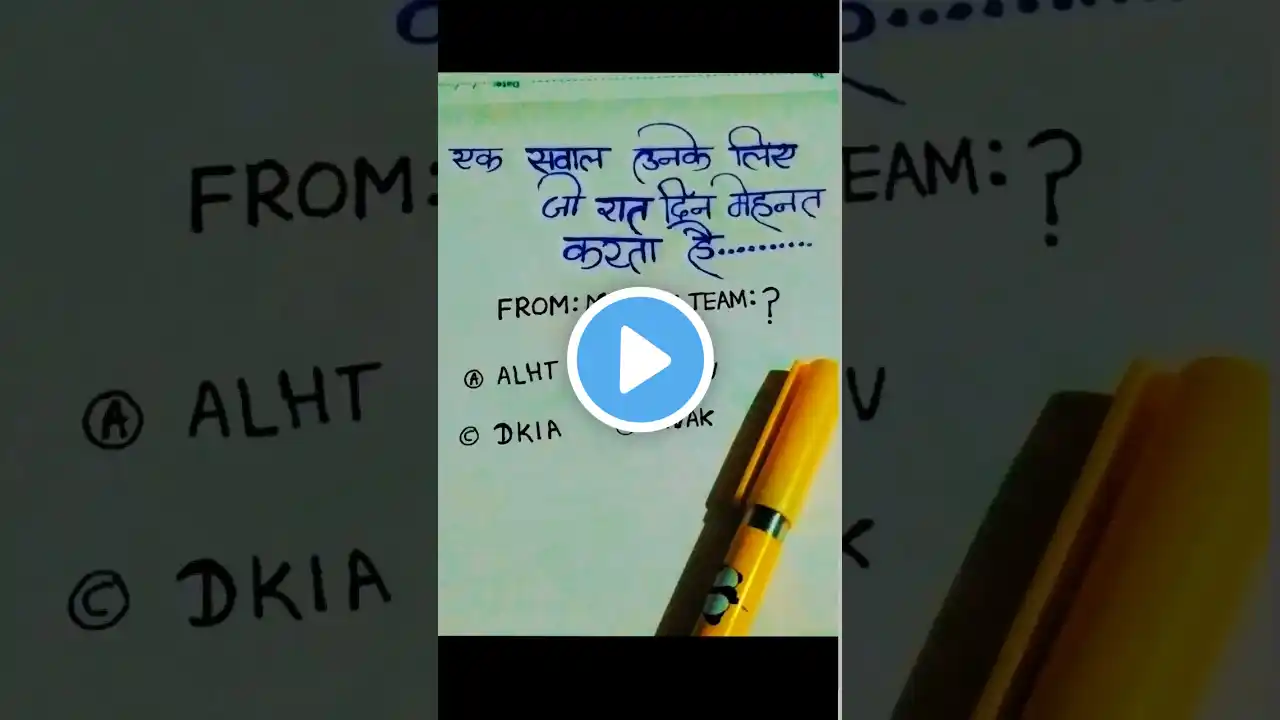 Date:
एक सवाल उनके लिए
जो रात दिन मेहनत
करता है..........
FROM: TEAM: ?
Ⓐ ALHT
Ⓒ DKIA